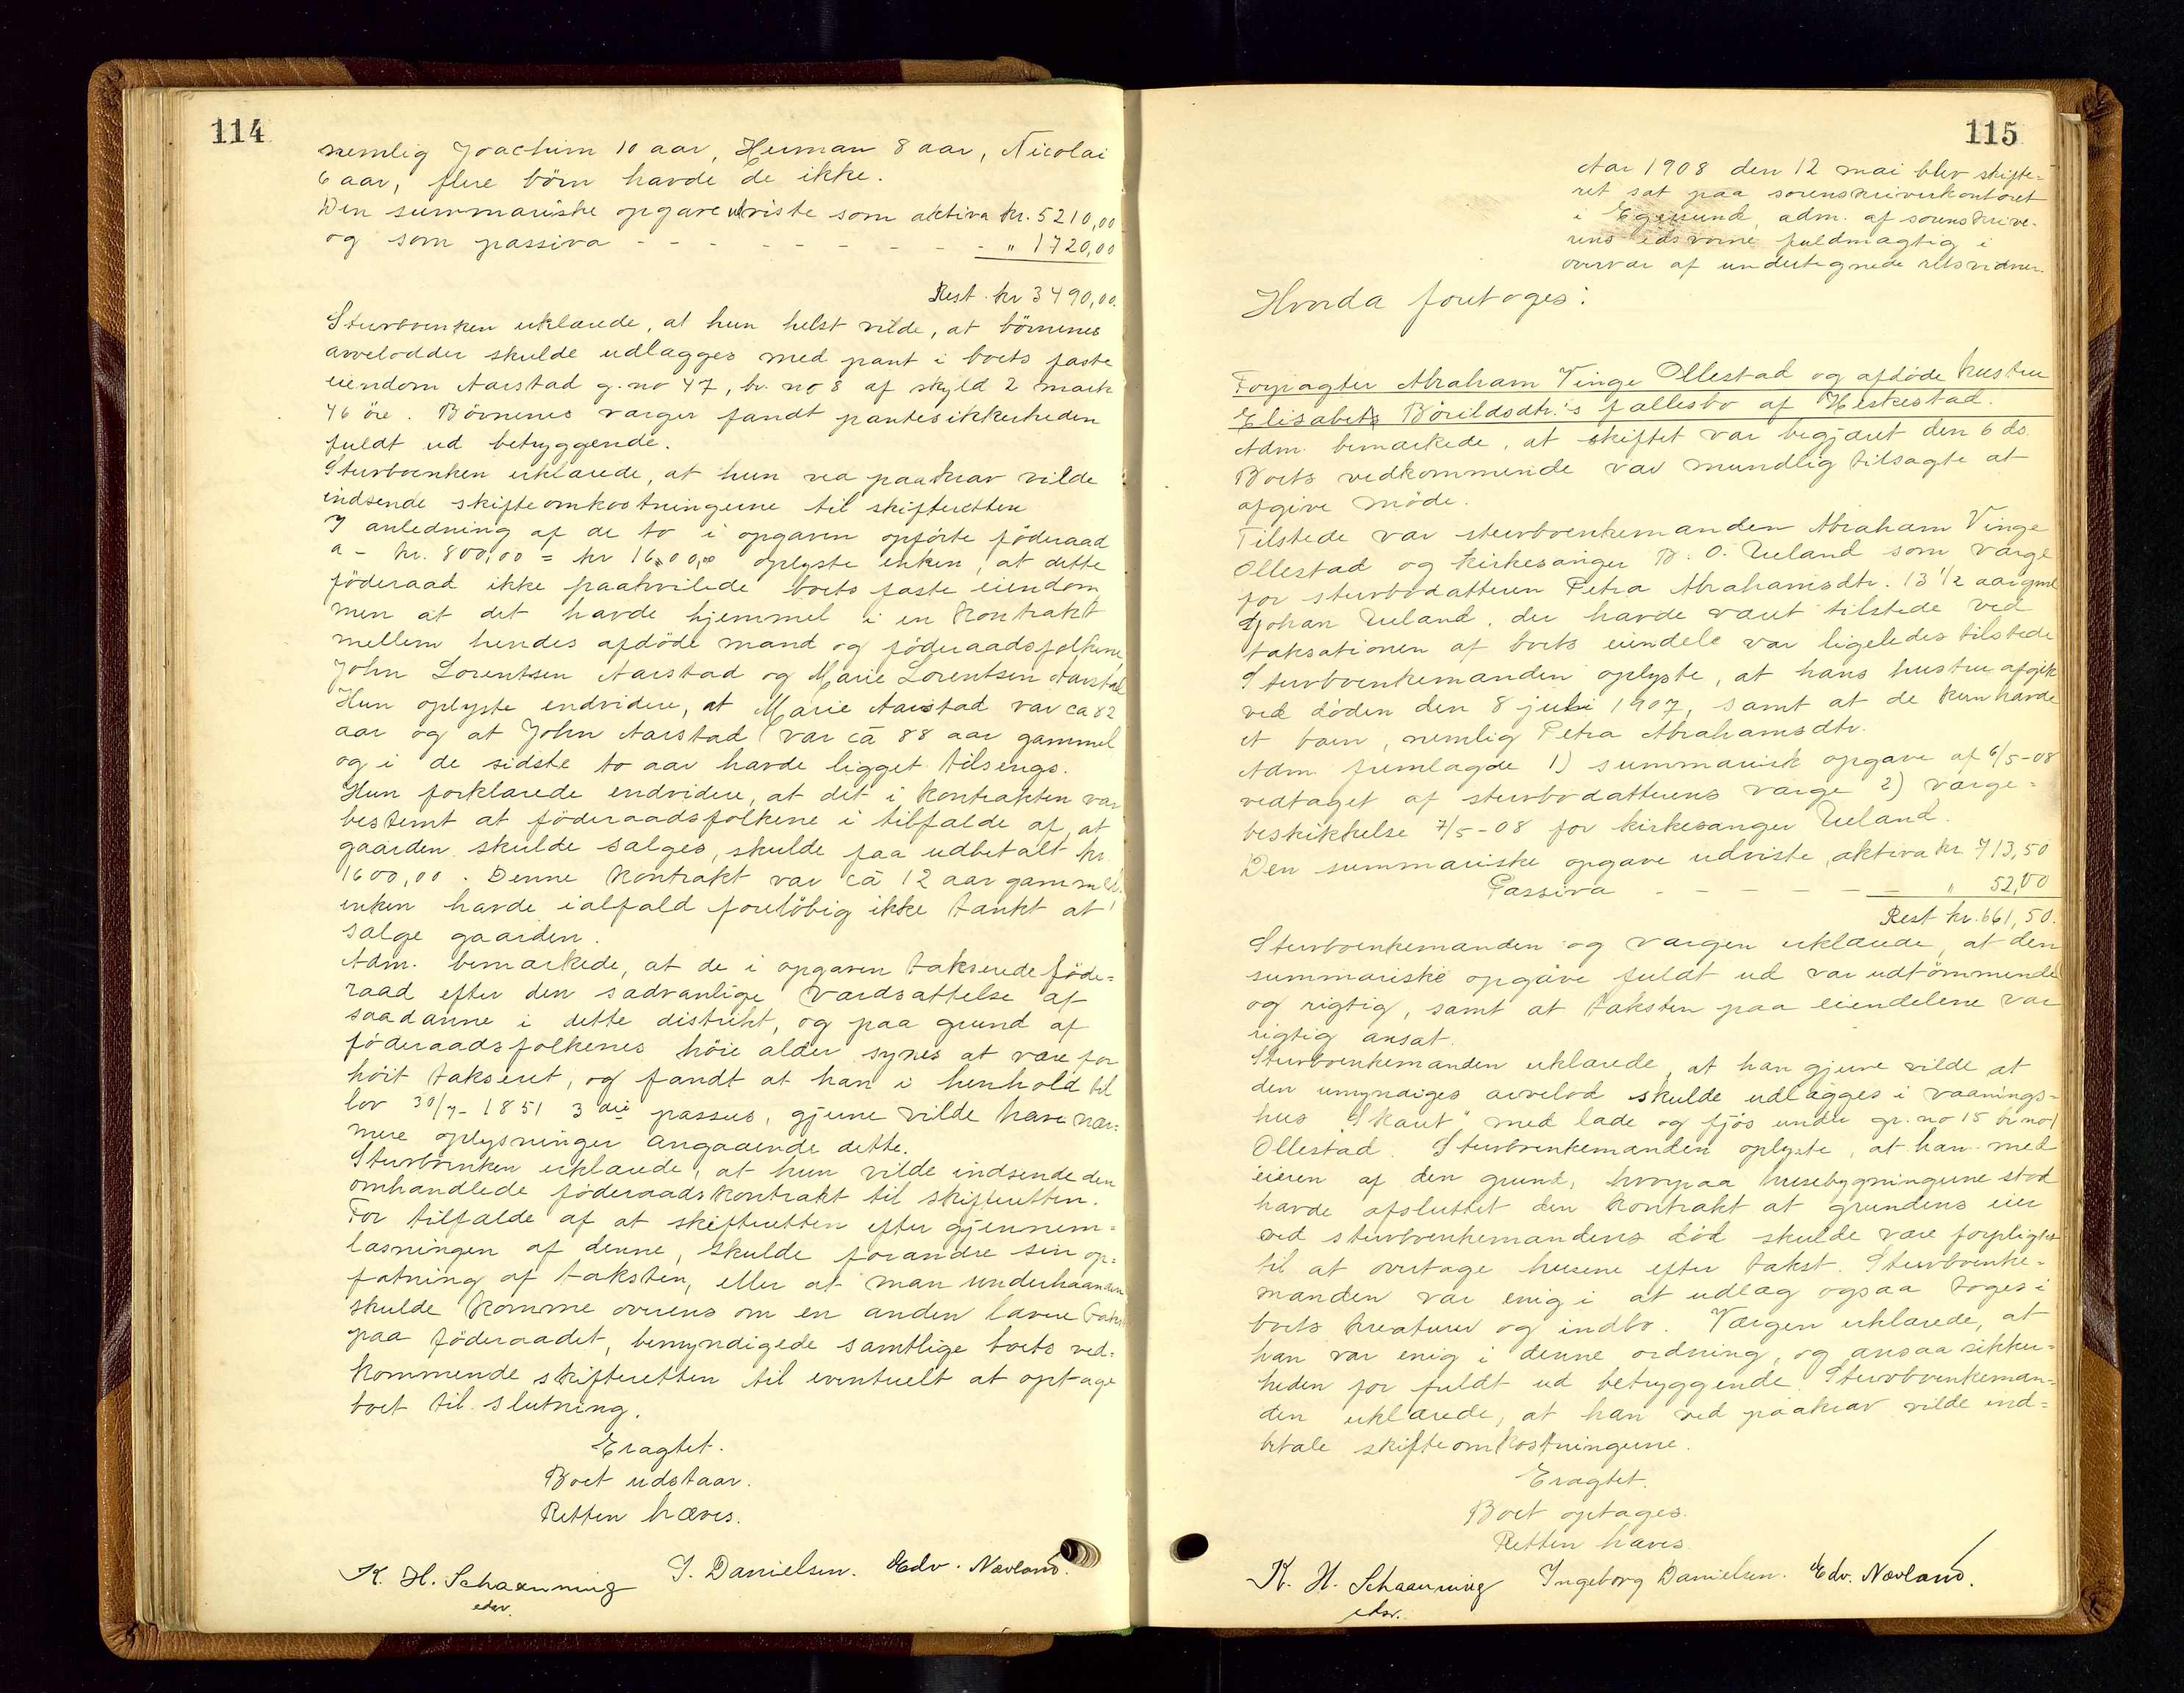 114
nemlig Joachim 10 aar, Herman 8 aar, Nicolai
6 aar, flere børn havde de ikke.
Den summariske opgave udviste som aktiva kr. 5210,00
og som passiva - - - - - - - - - " 1720,00
Rest. kr 3490,00.
Sterboenken erklærede, at hun helst vilde, at børnenes
arvelodder skulde udlægges med pant i boets faste
eiendom Aarstad g. no 47, br. no 8 af skyld 2 mark
46 øre. Børnenes værger fandt pantesikkerheden
fuldt ud betryggende.
Sterboenken erklærede, at hun ved paakrav vilde
indsende skifteomkostningerne til skifteretten
I anledning af de to i opgaven opførte føderaad
a - kr. 800,00 = kr 1600,00 oplyste enken, at dette
føderaad ikke paahvilede boets faste eiendom,
men at det havde hjemmel i en kontrakt
mellem hendes afdøde mand og føderaadsfolkene,
John Lorentsen Aarstad og Marie Lorentsen Aarstad
Hun oplyste endvidere, at Marie Aarstad var ca 82
aar og at John Aarstad var ca 88 aar gammel
og i de sidste to aar havde ligget tilsengs.
Hun forklarede endvidere, at det i kontrakten var
bestemt at føderaadsfolkene i tilfælde af, at
gaarden skulde sælges, skulde faa udbetalt kr.
1600,00. Denne kontrakt var ca 12 aar gammel.
enken havde ialfald foreløbig ikke tænkt at
sælge gaarden.
Adm. bemærkede, at de i opgaven takserede føde=
raad efter den sædvanlige værdsættelse af
saadanne i dette distrikt, og paa grund af
føderaadsfolkenes høie alder synes at være for
høit takseret, og fandt at han i henhold til
lov 30/7-1851 3 die passus, gjerne vilde have nær=
mere oplysninger angaaende dette.
Sterboenken erklærede, at hun vilde indsende den
omhandlede føderaadskontrakt til skifteretten.
For tilfælde af at skifteretten efter gjennem=
læsningen af denne, skulde forandre sin op=
fatning af taksten, eller at man underhaanden
skulde komme overens om en anden lavere takst
paa føderaadet, bemyndigede samtlige boets ved=
kommende skifteretten til eventuelt at optage
boet til slutning.
Eragtet.
Boet udstaar.
Retten hæves.
K. H. Schaanning I. Danielsen. Edv. Nævland.
edsv.
115
Aar 1908 den 12 mai blev skifte=
ret sat paa sorenskriverkontoret
i Egersund, adm. af sorenskrive=
rens edsvorne fuldmægtig i
overvær af undertegnede retsvidner.
Hvorda foretoges:
Forpagter Abraham Vinge Ollestad og afdøde hustru
Elisabets Børildsdtr.'s fællesbo af Heskestad.
Adm. bemærkede, at skiftet var begjæret den 6 ds.
Boets vedkommende var mundlig tilsagte at
afgive møde.
Tilstede var sterboenkemanden Abraham Vinge
Ollestad og kirkesanger B. O. Ueland som værge
for sterbodatteren Petra Abrahamsdtr. 13 1/2 aar gml
Johan Ueland, der havde været tilstede ved
taksationen af boets eiendele var ligeledes tilstede
Sterboenkemanden oplyste, at hans hustru afgik
ved døden den 8 juli 1907, samt at de kun havde
et barn, nemlig Petra Abrahamsdtr.
Adm. fremlagde 1) summarisk opgave af 6/5-08
vedtaget af sterbodatterens værge 2) værge=
beskikkelse 7/5-08 for kirkesanger Ueland.
Den summariske opgave udviste aktiva kr. 713,50
Passiva - - - - - - " 52,00
Rest kr. 661,50.
Sterboenkemanden og værgen erklærede, at den
summariske opgave fuldt ud var udtømmende
og rigtig, samt at taksten paa eiendelene var
rigtig ansat.
Sterboenkemanden erklærede, at han gjerne vilde at
den umyndiges arvelod skulde udlægges i vaanings=
hus "Skaret" med lade og fjøs under gr. no 15 br no 1
Ollestad. Sterboenkemanden oplyste, at han med
eieren af den grund, hvorpaa husebygningerne stod
havde afsluttet den kontrakt at grundens eier
ved sterboenkemandens død skulde være forpligtet
til at overtage husene efter takst. Sterboenke=
manden var enig i at udlæg ogsaa toges i
boets kreaturer og indbo. Værgen erklærede, at
han var enig i denne ordning, og ansaa sikker=
heden for fuldt ud betryggende. Sterboenkeman=
den erklærede, at han ved paakrav vilde ind=
betale skifteomkostningerne.
Eragtet.
Boet optages.
Retten hæves.
K. H. Schaanning Ingeborg Danielsen. Edv. Nævland.
edsv.